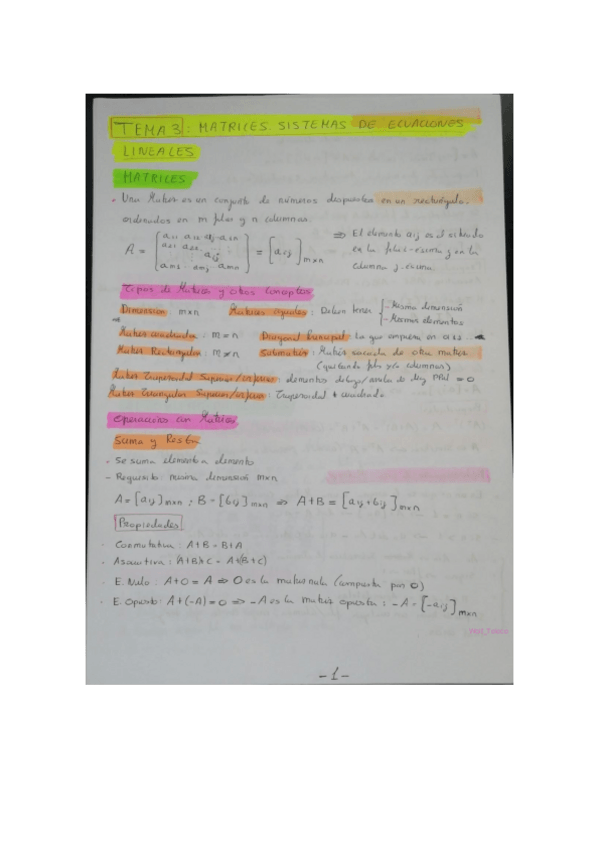 TEMA 3: MATRICES SISTEMAS DE ECUACIONES
LINEALES
MATRICES
• Una Matriz es un conjunto de números dispuestos en un rectángulo.
ordenados en m filas y n columnas.
A = [a11 a12 a1j … a1n; a21 a22 …; aij; am1 … amj … amn] = [aij]m×n ⇒ El elemento aij es el situado
en la fila i-esima y en la
columna j-esima
Tipos de Matrices y otros conceptos
Dimensión m×n Matrices iguales: Deben tener {- Misma dimensión
- Mismos elementos
Matriz cuadrada: m=n Diagonal Principal: La que empieza en a11
Matriz Rectangular: m≠n Submatriz: Matriz sacada de otra matriz
(quitando filas y/o columnas)
Matriz Trapezoidal Superior/inferior: elementos debajo/arriba de diag = 0
Matriz Triangular Superior/inferior: Trapezoidal + cuadrada
Operaciones con Matrices
Suma y Resta
• Se suma elemento a elemento
- Requisito: misma dimensión m×n
A=[aij]m×n; B=[bij]m×n ⇒ A+B = [aij+bij]m×n
Propiedades
· Conmutativa: A+B=B+A
· Asociativa: (A+B)+C = A+(B+C)
· E. Nulo: A+0=A ⇒ 0 es la matriz nula (compuesta por 0)
· E. Opuesto: A+(-A)=0 ⇒ -A es la matriz opuesta: -A=[-aij]m×n
-1-